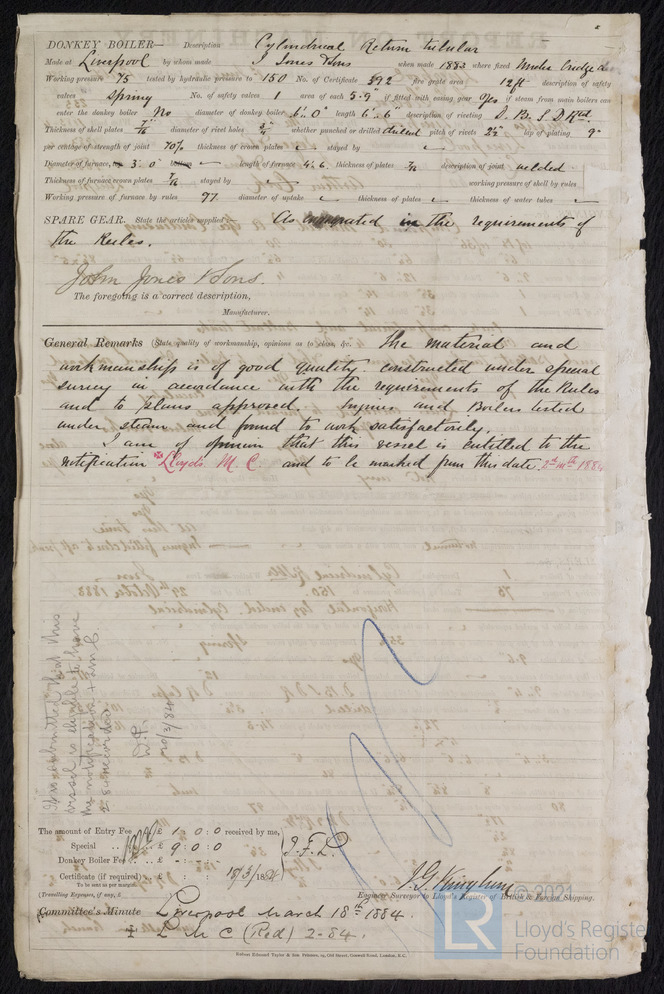 DONKEY BOILER— Description Cylindrical Return tubular
Made at Liverpool by whom made J Jones & Sons when made 1883 where fixed Under bridge
Working pressure 75 tested by hydraulic pressure to 150 No. of Certificate 392 fire grate area 12 ft description of safety
valves Spring No. of safety valves 1 area of each 5.9" if fitted with easing gear Yes if steam from main boilers can
enter the donkey boiler No diameter of donkey boiler 6'. 0" length 6'. 6" description of riveting D. B. S D Rtd.
Thickness of shell plates 7/16 diameter of rivet holes whether punched or drilled drilled pitch of rivets 2½ lap of plating 9"
per centage of strength of joint 70% thickness of crown plates stayed by
Diameter of furnace, 3'. 0" length of furnace 4'. 6. thickness of plates description of joint welded
Thickness of furnace crown plates stayed by working pressure of shell by rules
Working pressure of furnace by rules 97 diameter of uptake thickness of plates thickness of water tubes
SPARE GEAR. State the articles supplied:— As in the requirements of
the Rules.
John Jones & Sons.
The foregoing is a correct description,
Manufacturer.
General Remarks (State quality of workmanship, opinions as to class, &c. The material and
workmanship is of good quality. constructed under special
survey in accordance with the requirements of the Rules
and to plans approved. Engines and Boilers tested
under steam and found to work satisfactorily.
I am of opinion that this vessel is entitled to the
notification Lloyds M. C. and to be marked from this date. 2nd mth 1884
It is submitted that this
vessel is eligible to have
the notification + LMC
2.84 recorded
20/3/84
The amount of Entry Fee .. £ 1 : 0 : 0 received by me,
Special .. .. £ 9 : 0 : 0 J.F.L.
Donkey Boiler Fee .. .. £ - : - : -
Certificate (if required) .. £ : : 18/3/1884
To be sent as per margin.
(Travelling Expenses, if any, £
Engineer Surveyor to Lloyd's Register of British & Foreign Shipping.
Committee's Minute Liverpool March 18th 1884.
+ L M C (Red) 2-84.
Robert Edmund Taylor & Son Printers, 19, Old Street, Goswell Road, London, E.C.
© 2021
LR
Lloyd's Register
Foundation